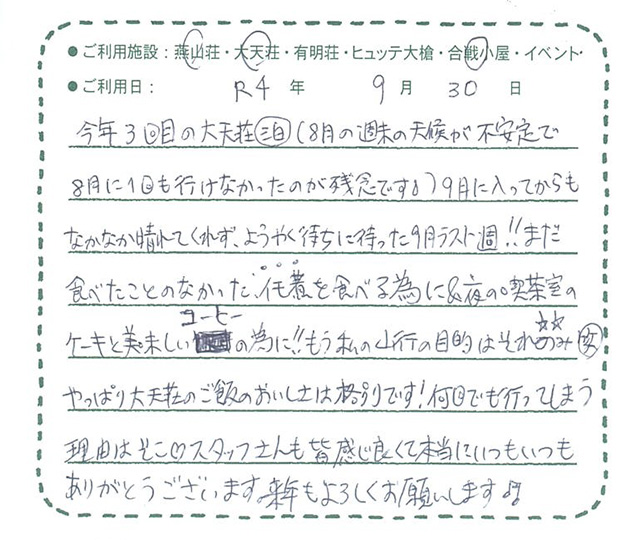 ●ご利用施設：燕山荘・大天荘・有明荘・ヒュッテ大槍・合戦小屋・イベント・
●ご利用日： R4 年 9 月 30 日
今年3回目の大天荘三泊(8月の週末の天候が不安定で
8月に1回も行けなかったのが残念です♪)9月に入ってからも
なかなか晴れてくれず、ようやく待ちに待った9月ラスト週!!まだ
食べたことのなかった、仔煮を食べる為に&夜の喫茶室の
コーヒー
ケーキと美味しい の為に!!もう私の山行の目的はそれのみ☆☆(笑)
やっぱり大天荘のご飯のおいしさは格別です!何回でも行ってしまう
理由はそこ♡スタッフさんも皆感じ良くて本当にいつもいつも
ありがとうございます。来年もよろしくお願いします♪